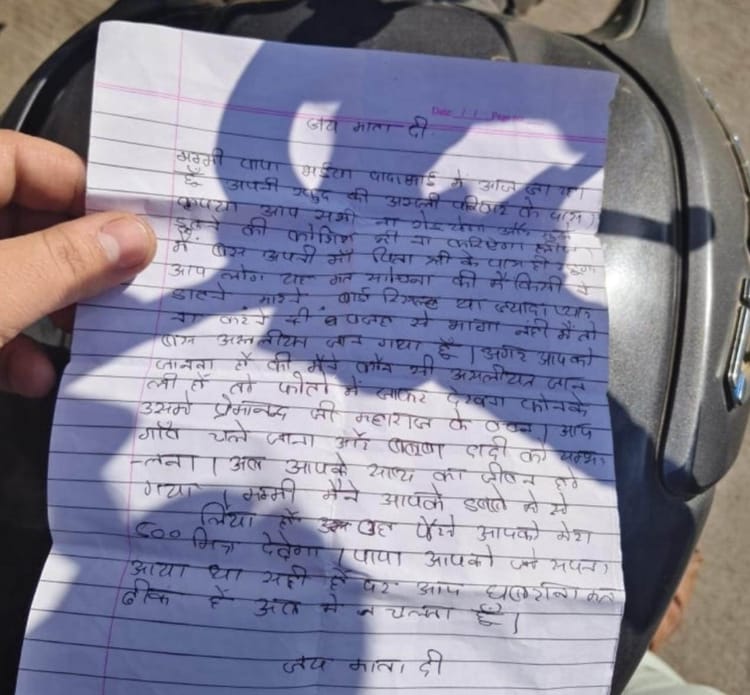 Date / / Page
जय माता दी
मम्मी पापा भईया दादा भाई मैं आज जा रहा
हूँ अपनी खुद की असली परिवार के पास।
कृपया आप सभी ना रोइयेगा और मुझे
ढूंढने की कोशिश भी ना करियेगा
मैं बस अपनी माँ पिता श्री के पास ही
आप लोग यह मत सोचना की मैं किसी के
डाटने मारने बोर्ड रिजल्ट या ज्यादा प्यार
ना करने की वजह से भागा नहीं मैं तो
बस असलीयत जान गया हूँ। अगर आपको
जानना है की मैंने कौन सी असलीयत जान
ली है तो फोटो में जाकर देखना फोनके
उसमे प्रेमानन्द जी महाराज के वचन। आप
गाँव चले जाना और दादी को सम्भा
-लना। अब आपके साथ का जीवन हो
गया। मम्मी मैंने आपके डब्बे से
५०० लिया है वह पैसे आपको मेरा
मित्र देदेगा। पापा आपको जो सपना
आया था सही है पर आप घबराना मत
ठीक है अब मैं चलता हूँ।
जय माता दी